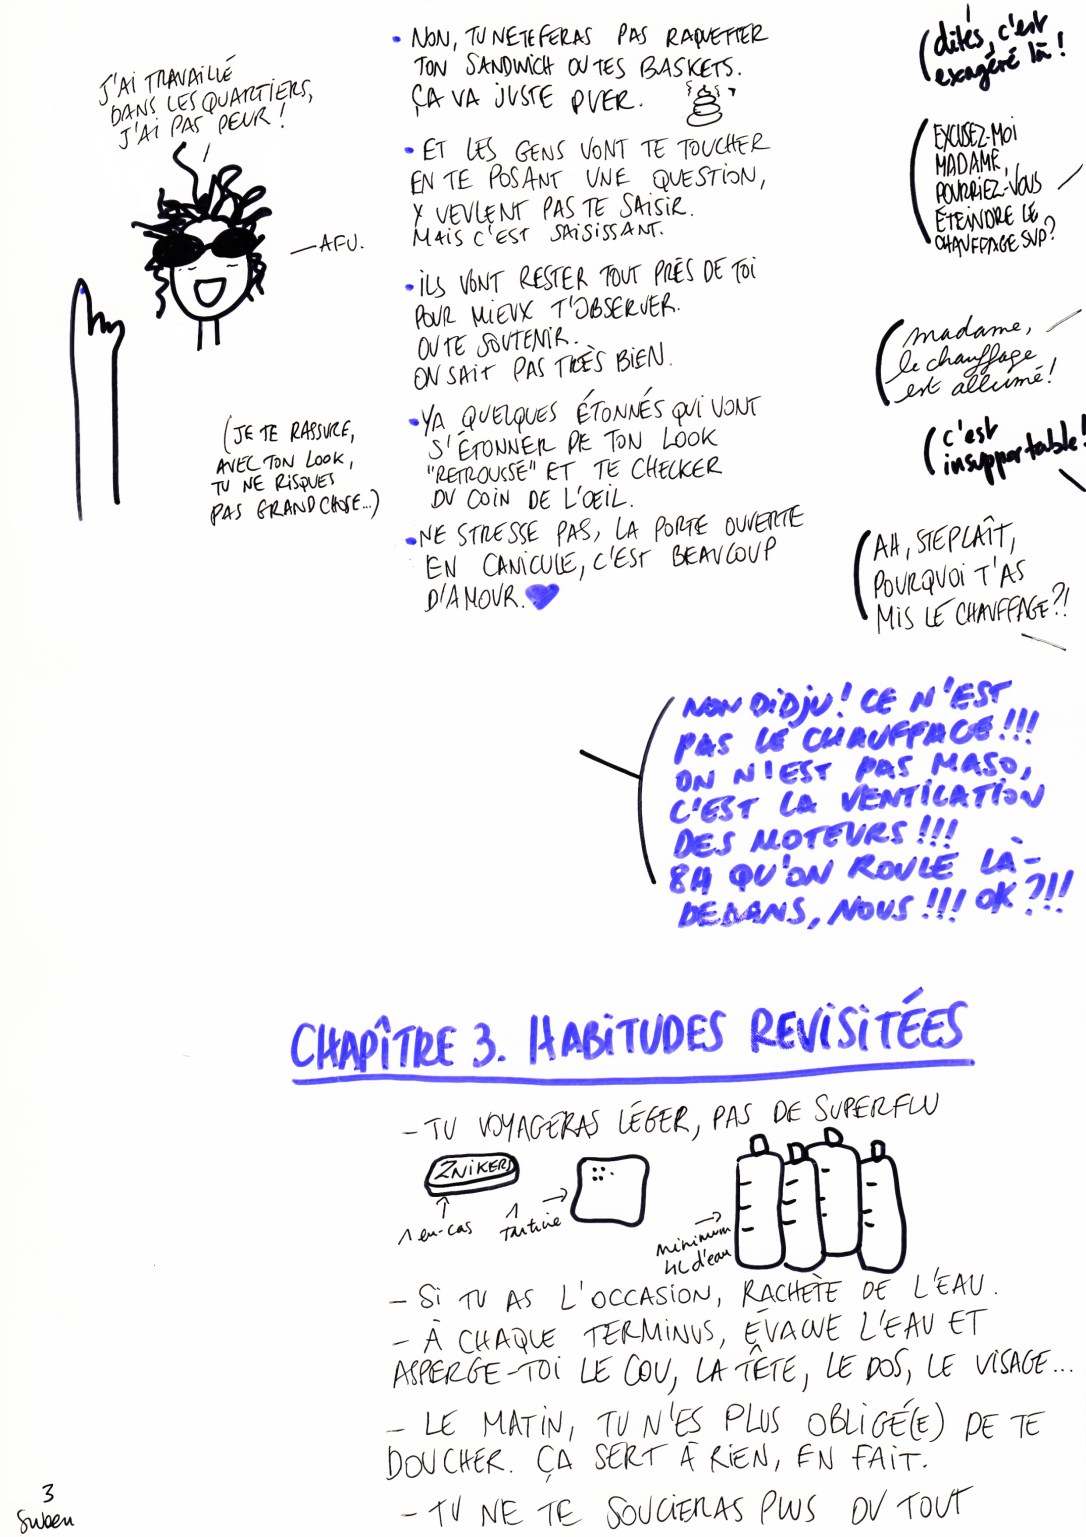 J'AI TRAVAILLÉ
DANS LES QUARTIERS,
J'AI PAS PEUR !
AFU.
(JE TE RASSURE,
AVEC TON LOOK,
TU NE RISQUES
PAS GRAND CHOSE...)
• NON, TU NE TE FERAS PAS RAQUETTER
TON SANDWICH OU TES BASKETS.
ÇA VA JUSTE PUER.
• ET LES GENS VONT TE TOUCHER
EN TE POSANT UNE QUESTION,
Y VEULENT PAS TE SAISIR.
MAIS C'EST SAISISSANT.
• ILS VONT RESTER TOUT PRÈS DE TOI
POUR MIEUX T'OBSERVER.
OU TE SOUTENIR.
ON SAIT PAS TRÈS BIEN.
• YA QUELQUES ÉTONNÉS QUI VONT
S'ÉTONNER DE TON LOOK
"RETROUSSÉ" ET TE CHECKER
DU COIN DE L'ŒIL.
• NE STRESSE PAS, LA PORTE OUVERTE
EN CANICULE, C'EST BEAUCOUP
D'AMOUR.
dités, c'est
exagéré là !
EXCUSEZ-MOI
MADAME,
POURRIEZ-VOUS
ÉTEINDRE LE
CHAUFFAGE SVP ?
madame,
le chauffage
est allumé !
c'est
insupportable !
AH, STEPLAÎT,
POURQUOI T'AS
MIS LE CHAUFFAGE ?!
NON DIDJU ! CE N'EST
PAS LE CHAUFFAGE !!!
ON N'EST PAS MASO,
C'EST LA VENTILATION
DES MOTEURS !!!
8H QU'ON ROULE LÀ-
DEDANS, NOUS !!! OK ?!!
CHAPÎTRE 3. HABITUDES REVISITÉES
- TU VOYAGERAS LÉGER, PAS DE SUPERFLU
ZNIKERS
1 en-cas
1 tartine
minimum
4L d'eau
- SI TU AS L'OCCASION, RACHÈTE DE L'EAU.
- À CHAQUE TERMINUS, ÉVACUE L'EAU ET
ASPERGE-TOI LE COU, LA TÊTE, LE DOS, LE VISAGE...
- LE MATIN, TU N'ES PLUS OBLIGÉ(E) DE TE
DOUCHER. ÇA SERT À RIEN, EN FAIT.
- TU NE TE SOUCIERAS PLUS DU TOUT
3